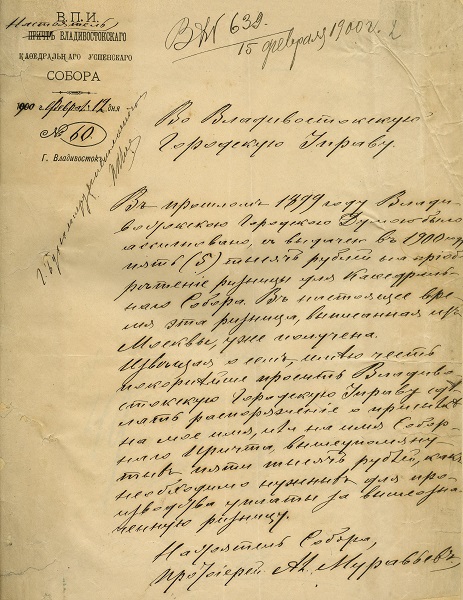 В.П.И.
Настоятель
ПРИЧТЪ ВЛАДИВОСТОКСКАГО
КАФЕДРАЛЬНАГО УСПЕНСКАГО
СОБОРА
1900 г. Феврал. 12 дня
№ 60.
Г. Владивостокъ.
ВЖ 632
15 февраля 1900 г.
2
Во Владивостокскую
Городскую Управу.
Въ прошломъ 1899 году Влади-
востокскою Городскою Думою было
ассигновано, съ выдачею въ 1900 году,
пять (5) тысячъ рублей на пріоб-
рѣтеніе ризницы для Кафедраль-
наго Собора. Въ настоящее вре-
мя эта ризница, выписанная изъ
Москвы, уже получена.
Извѣщая о семъ, имѣю честь
покорнѣйше просить Владиво-
стокскую Городскую Управу сдѣ-
лать распоряженіе о
на мое имя, или на имя Собор-
наго Причта, вышеупомяну-
тыхъ пяти тысячъ рублей, какъ
необходимо нужныхъ для про-
изводства уплаты за вышеозна-
ченную ризницу.
Настоятель Собора,
протоіерей Ал. Муравьевъ.